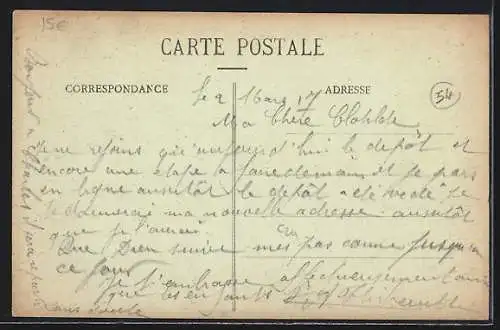 15€
CARTE POSTALE
CORRESPONDANCE
ADRESSE
54
Le 2 Mars 17
Ma Chère Clotilde
Je ne rejoins qu'aujourd'hui le depôt et
encore une étape a faire demain et je pars
en ligne aussitôt le depôt a été Je
te donnerai ma nouvelle adresse aussitôt
que je l'aurai
Que Dieu suive mes pas comme jusqu'a
ce jour
Je t'embrasse affectueusement ainsi
que les enfants
sans doute
Bonjour a Charles